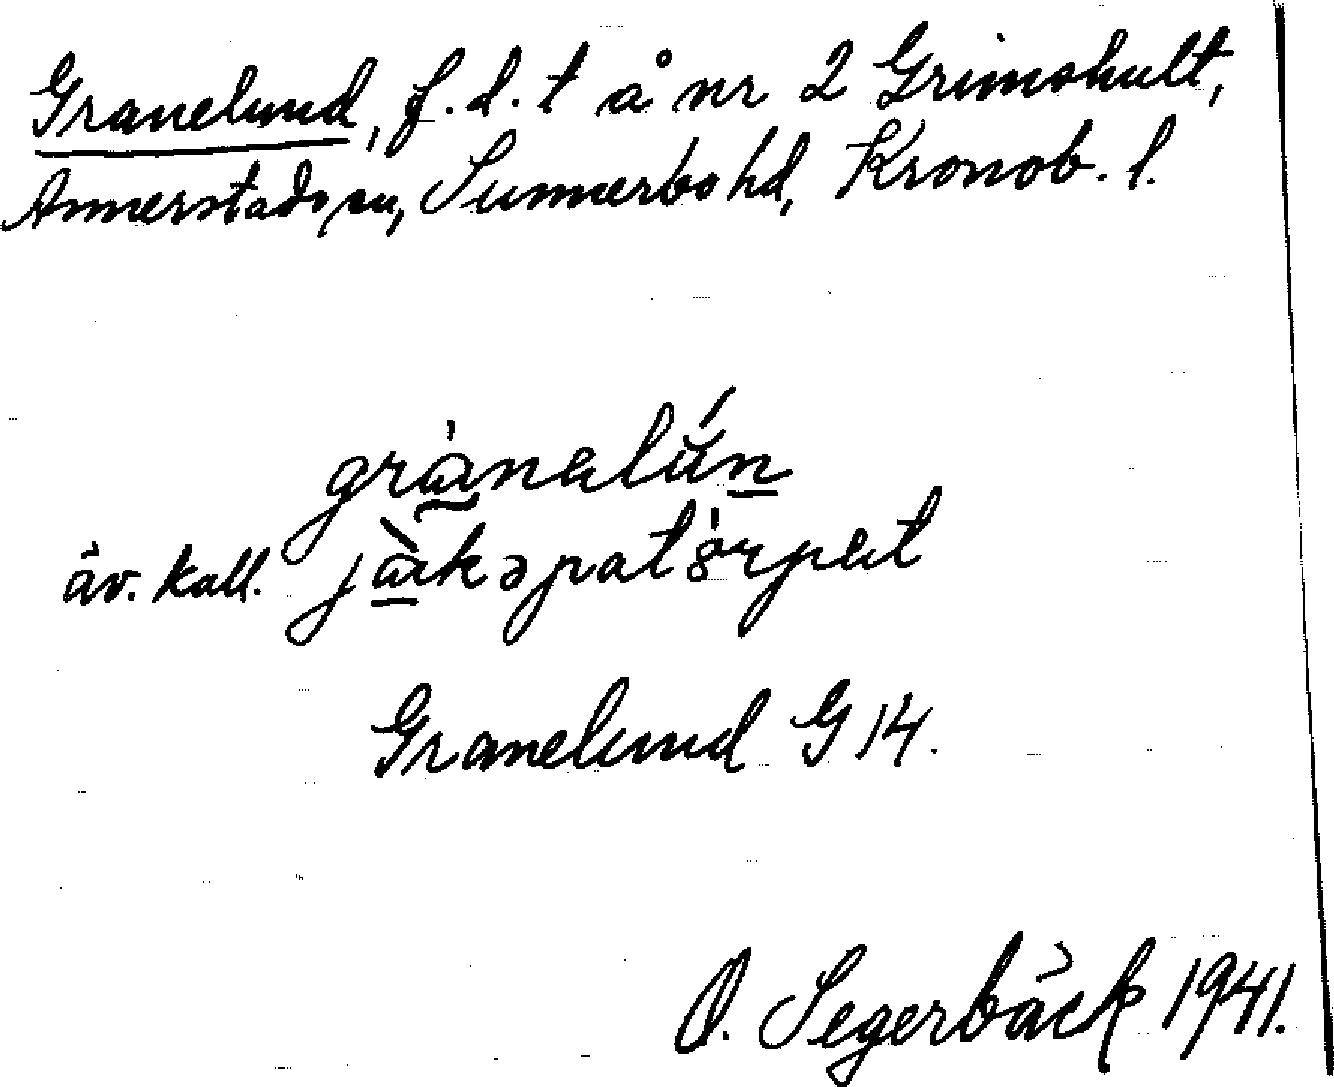 Granelund, f.d.t å nr 2 Grimshult,
Annerstads sn, Sunnerbo hd, Kronob. l.
grànelún
äv. kall. jàkəpatórpet
Granelund G 14.
O. Segerbäck 1941.